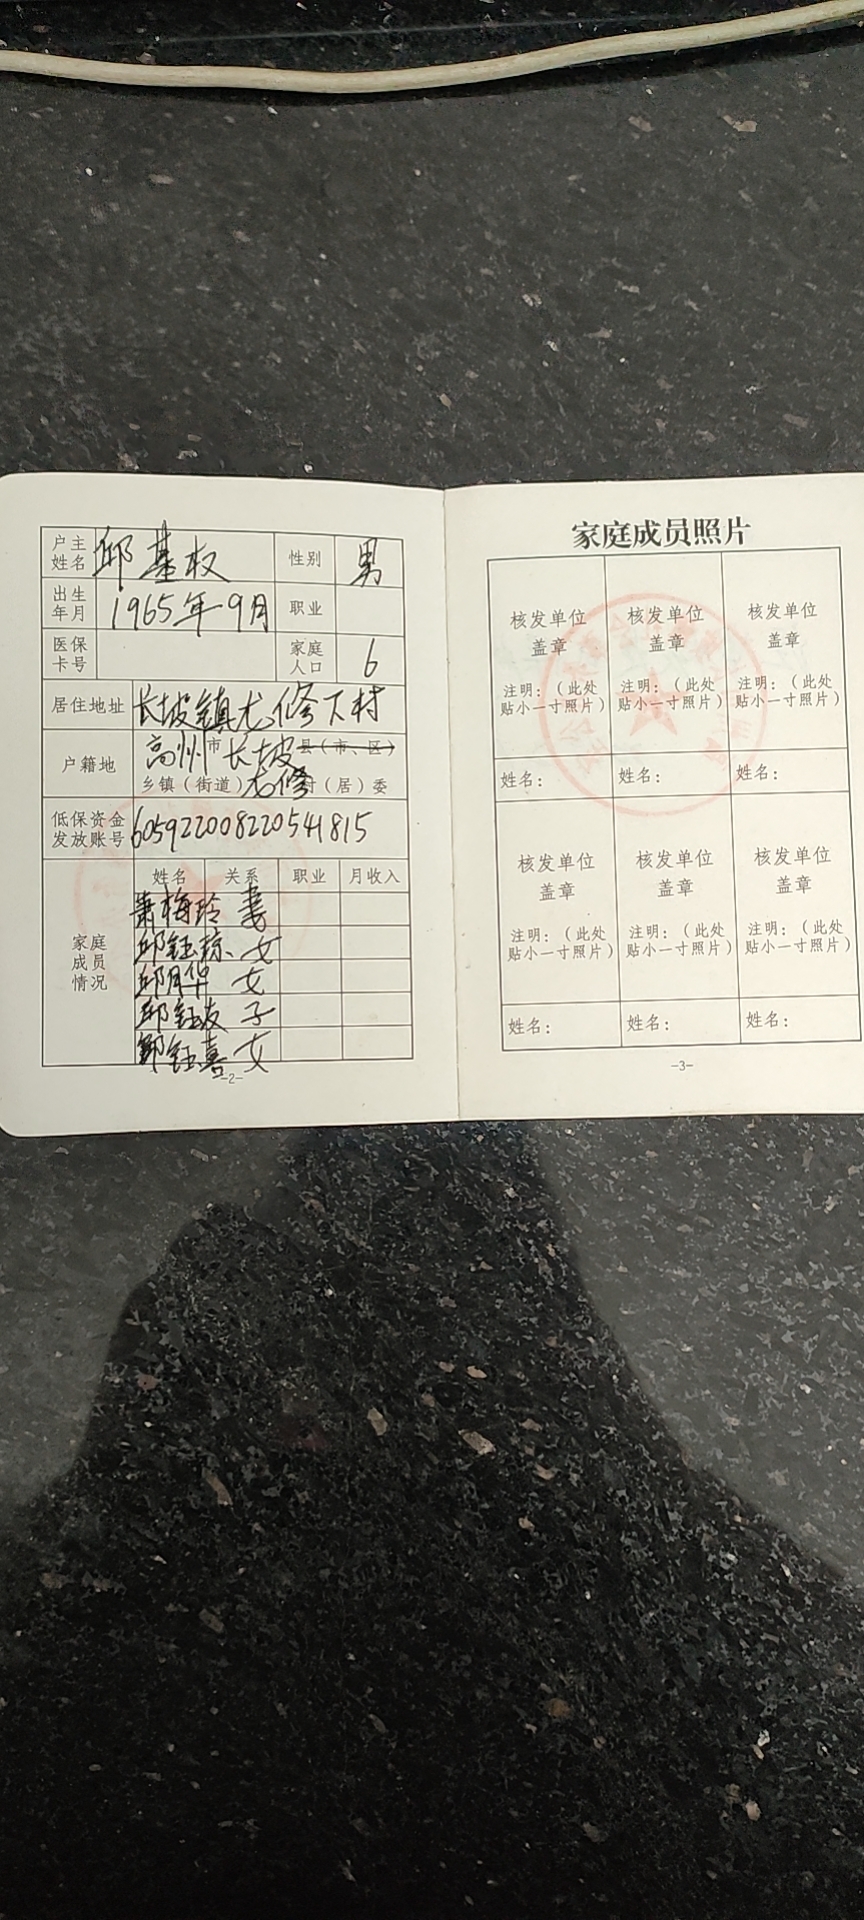 户主姓名 邱基权 性别 男
出生年月 1965年9月 职业
医保卡号 家庭人口 6
居住地址 长坡镇尤修下村
户籍地 高州市长坡县（市、区）
乡镇（街道）尤修村（居）委
低保资金发放账号 605922008220541815
家庭成员情况
姓名 关系 职业 月收入
萧梅玲 妻
邱钰琼 女
邱月华 女
邱钰友 子
邹钰喜 女
-2-
家庭成员照片
核发单位 核发单位 核发单位
盖章 盖章 盖章
注明：（此处 注明：（此处 注明：（此处
贴小一寸照片） 贴小一寸照片） 贴小一寸照片）
姓名： 姓名： 姓名：
核发单位 核发单位 核发单位
盖章 盖章 盖章
注明：（此处 注明：（此处 注明：（此处
贴小一寸照片） 贴小一寸照片） 贴小一寸照片）
姓名： 姓名： 姓名：
-3-